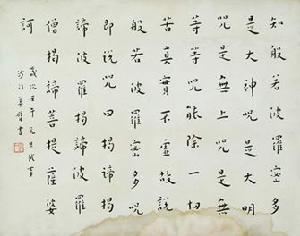 知般若波羅蜜多
是大神咒是大明
咒是無上咒是無
等等咒能除一切
苦真實不虛故說
般若波羅蜜多咒
即說咒曰揭諦揭
諦波羅揭諦波羅
僧揭諦菩提薩婆
訶
歲次壬午